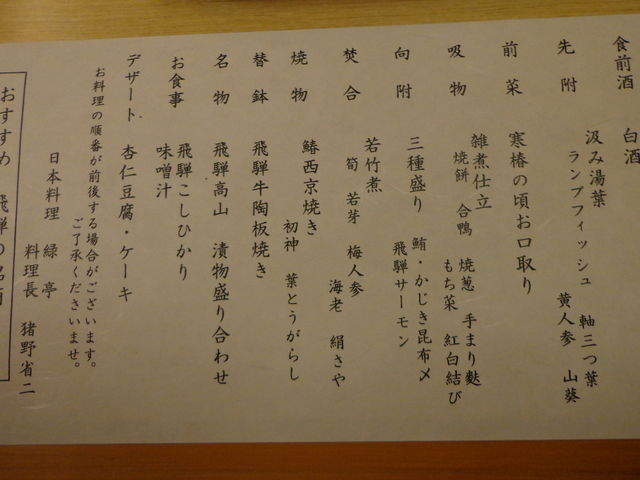 食前酒 白酒
先附 汲み湯葉 軸三つ葉
ランプフィッシュ 黄人参 山葵
前菜 寒椿の頃お口取り
吸物 雑煮仕立 焼葱 手まり麩
焼餅 合鴨 もち菜 紅白結び
向附 三種盛り 鮪・かじき昆布〆
飛騨サーモン
焚合 若竹煮
筍 若芽 梅人参
海老 絹さや
焼物 鰆西京焼き
初神 葉とうがらし
替鉢 飛騨牛陶板焼き
名物 飛騨高山 漬物盛り合わせ
お食事 飛騨こしひかり
味噌汁
デザート 杏仁豆腐・ケーキ
お料理の順番が前後する場合がございます。
ご了承くださいませ。
日本料理 緑亭
料理長 猪野省二
おすすめ 飛騨の銘酒